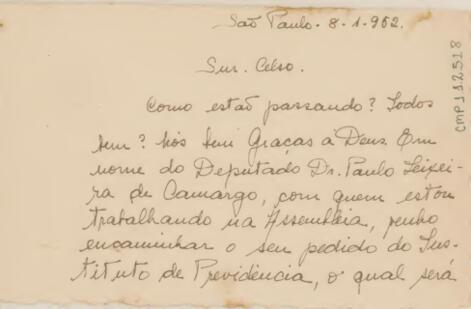 São Paulo - 8-1-962.
Snr. Celso.
Como estão passando? Todos
bem? Nós bem Graças a Deus. Em
nome do Deputado Dr. Paulo Teixei-
ra de Camargo, com quem estou
trabalhando na Assembléia, venho
encaminhar o seu pedido do Ins-
tituto de Previdencia, o qual será
CMP112518